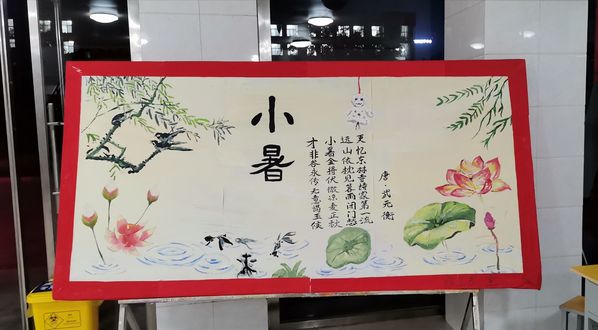 小暑
才非谷永传无意谒王侯
小暑金将伏微凉麦正秋
远山依枕见暮雨闭门愁
更忆东林寺诗家第一流
唐·武元衡